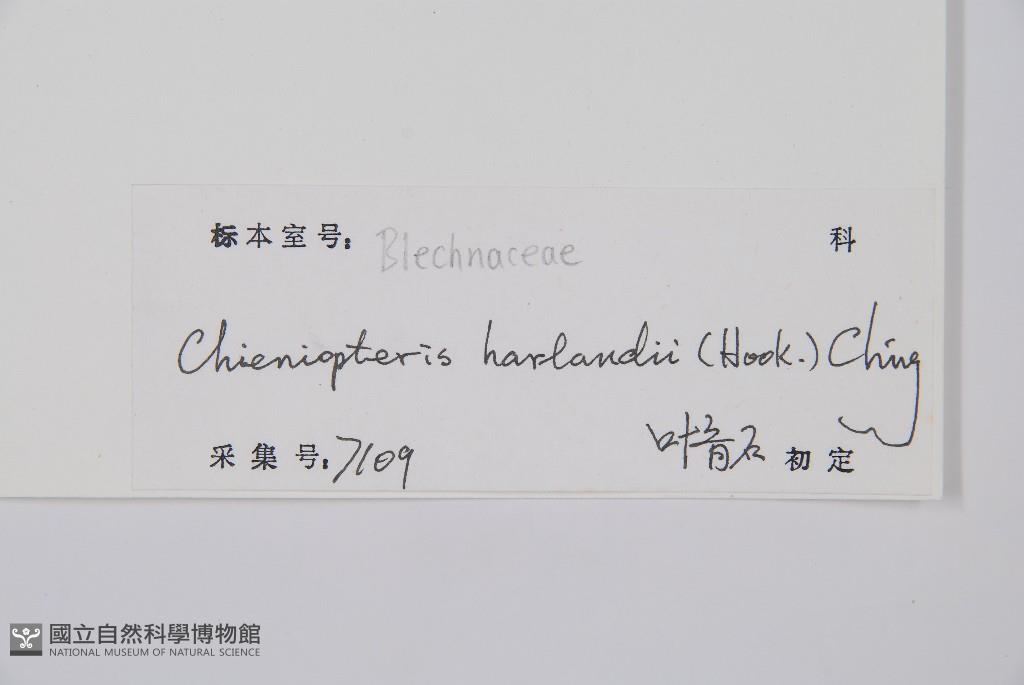 标本室号: Blechnaceae 科
Chieniopteris harlandii (Hook.) Ching
采集号: 7109 叶育石 初定
國立自然科學博物館
NATIONAL MUSEUM OF NATURAL SCIENCE